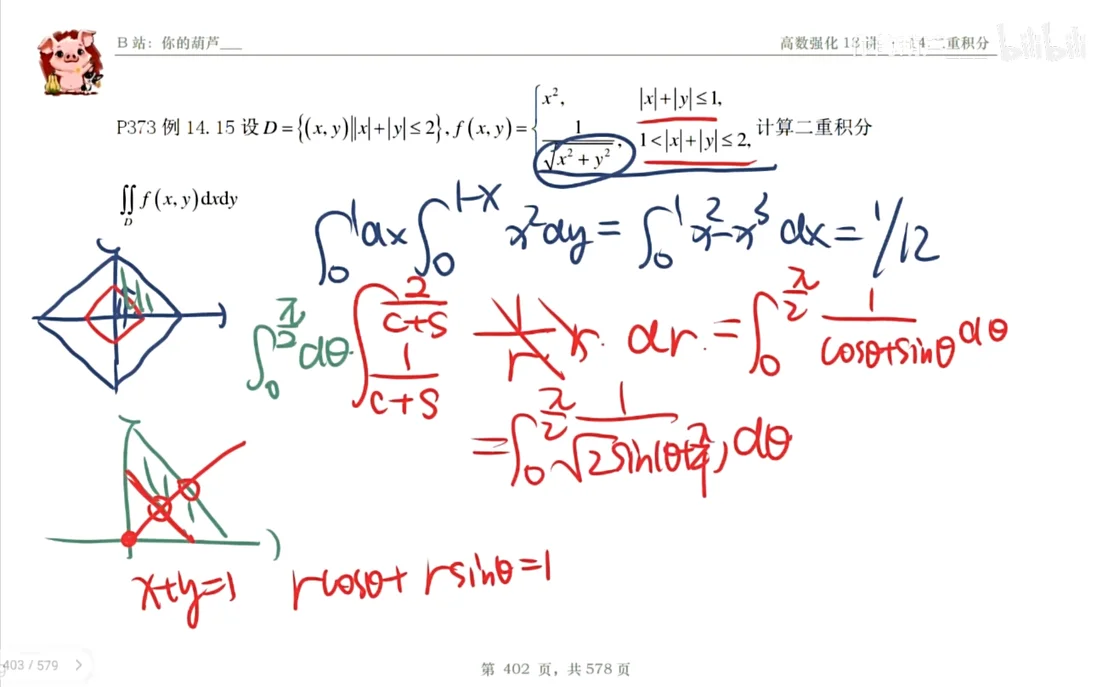 B 站：你的葫芦___
高数强化 13 讲
14.二重积分
bilibili
P373 例 14.15 设 D = {(x, y)||x|+|y| ≤ 2}, f(x, y) = { x², |x|+|y| ≤ 1, 1/√(x² + y²), 1 < |x|+|y| ≤ 2, 计算二重积分
∬_D f(x, y)dxdy
∫₀¹ dx ∫₀^(1-x) x² dy = ∫₀¹ x² - x³ dx = 1/12
∫₀^(π/2) dθ ∫_(1/(c+s))^(2/(c+s)) 1/r · r dr = ∫₀^(π/2) 1/(cosθ+sinθ) dθ
= ∫₀^(π/2) 1/(√2 sin(θ+π/4)) dθ
x+y=1 rcosθ + rsinθ = 1
403 / 579 >
第 402 页，共 578 页